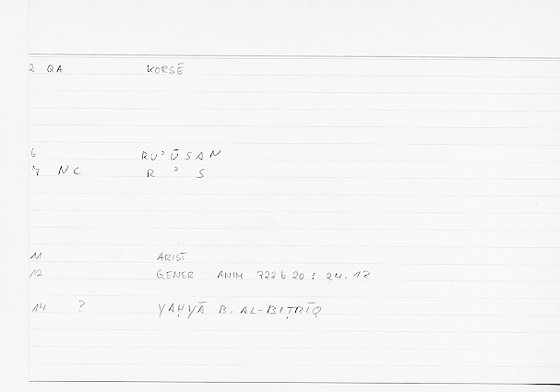 2 QA KORSĒ
6 RUʾŪSAN
7 NC R ʾ S
11 ARIST
12 GENER ANIM 722 b 20 : 24.17
14 ? YAḤYĀ B. AL-BIṬRĪQ